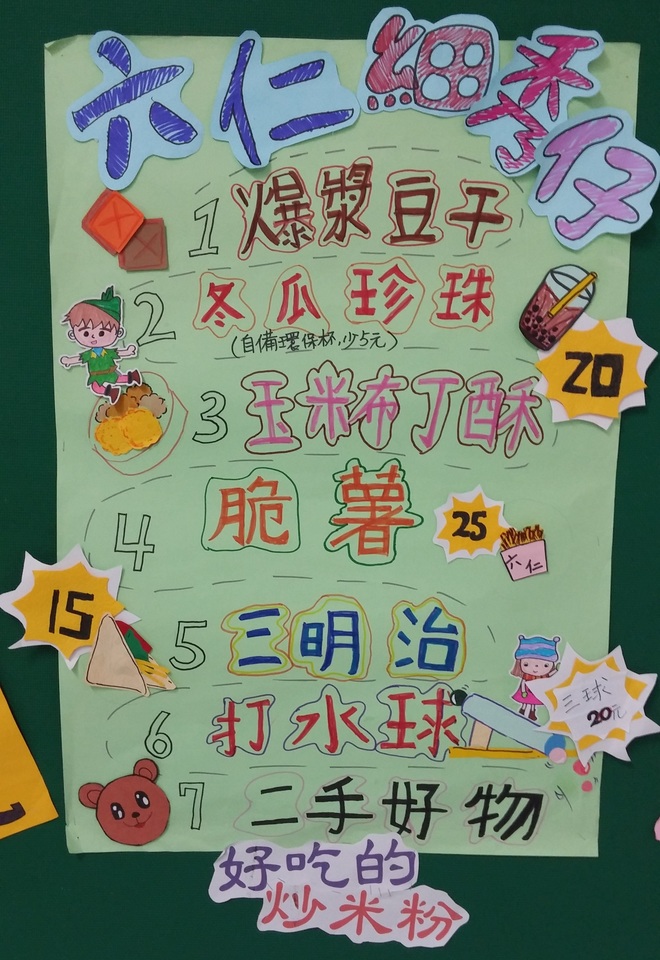 六仁細秀仔
1 爆漿豆干
2 冬瓜珍珠
(自備環保杯,少5元)
20
3 玉米布丁酥
4 脆薯
25
六仁
15
5 三明治
6 打水球
三球
20元
7 二手好物
好吃的
炒米粉